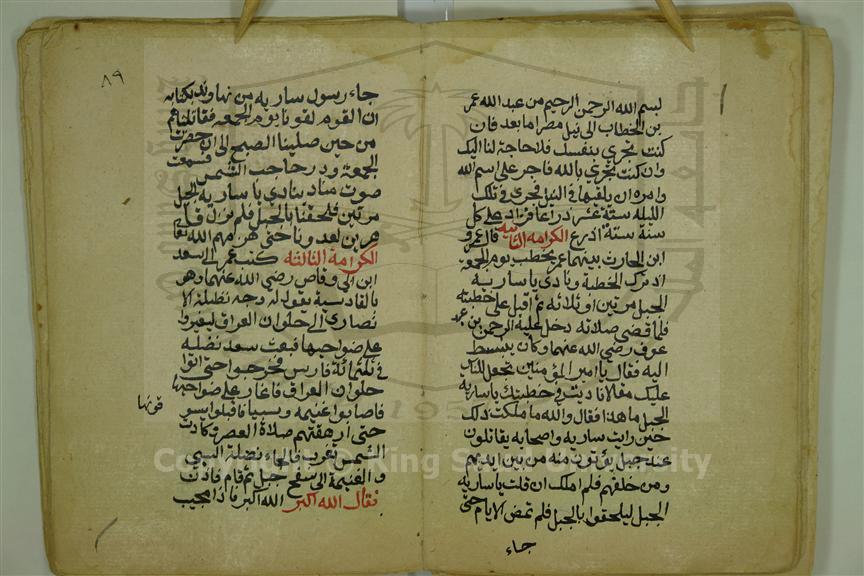 بسم الله الرحمن الرحيم من عبد الله عمر
بن الخطاب الى نيل مصر اما بعد فان
كنت تجري بنفسك فلا حاجة لنا اليك
وان كنت تجري بالله فاجر على اسم الله
وامره ان يلقيها في النيل فجرى في تلك
الليلة ستة عشر ذراعا فزاد على كل
سنة ستة اذرع الكرامه الثانيه قال عمرو
ابن الحارث بينما عمر يخطب يوم الجمعه
اذ ترك الخطبة ونادى يا ساريه
الجبل مرتين او ثلاثه ثم اقبل على خطبته
فلما قضى صلاته دخل عليه عبد الرحمن بن
عوف رضي الله عنهما وكان ينبسط
اليه فقال يا امير المؤمنين تجعل للناس
عليك مقالا ناديت في خطبتك يا ساريه
الجبل ما هذا فقال والله ما ملكت ذلك
حين رايت ساريه واصحابه يقاتلون
عند جبل يؤتون منه من بين ايديهم
ومن خلفهم فلم املك ان قلت يا ساريه
الجبل ليلحقوا بالجبل فلم تمض الايام حتى
جاء
٨٩
جاء رسول ساريه من نهاوند بكتابه
ان القوم لقونا يوم الجمعه فقاتلناهم
من حين صلينا الصبح الى ان حضرت
الجمعة ودر حاجب الشمس فسمعت
صوت مناد ينادي يا ساريه الجبل
مرتين فلحقنا بالجبل فلم نزل
حتى هزمهم الله تعالى
الكرامة الثالثه كتب عمر الى سعد
ابن ابي وقاص رضي الله عنهما وهو
بالقادسية يقول له وجه نضلة الا
نصاري الى حلوان العراق ليغيروا
على ضواحيها فبعث سعد نضله
في ثلثمائة فارس فخرجوا حتى اتوا
حلوان العراق فاغار على ضواحيها
فاصابوا غنيمه وسبيا فاقبلوا يسو
قونها
حتى ارهقتهم صلاة العصر وكادت
الشمس تغرب فالجاء نضلة السبي
و الغنيمة الى سفح جبل ثم قام فاذن
فقال الله اكبر الله اكبر فاذا مجيب
Copyright © King Saud University